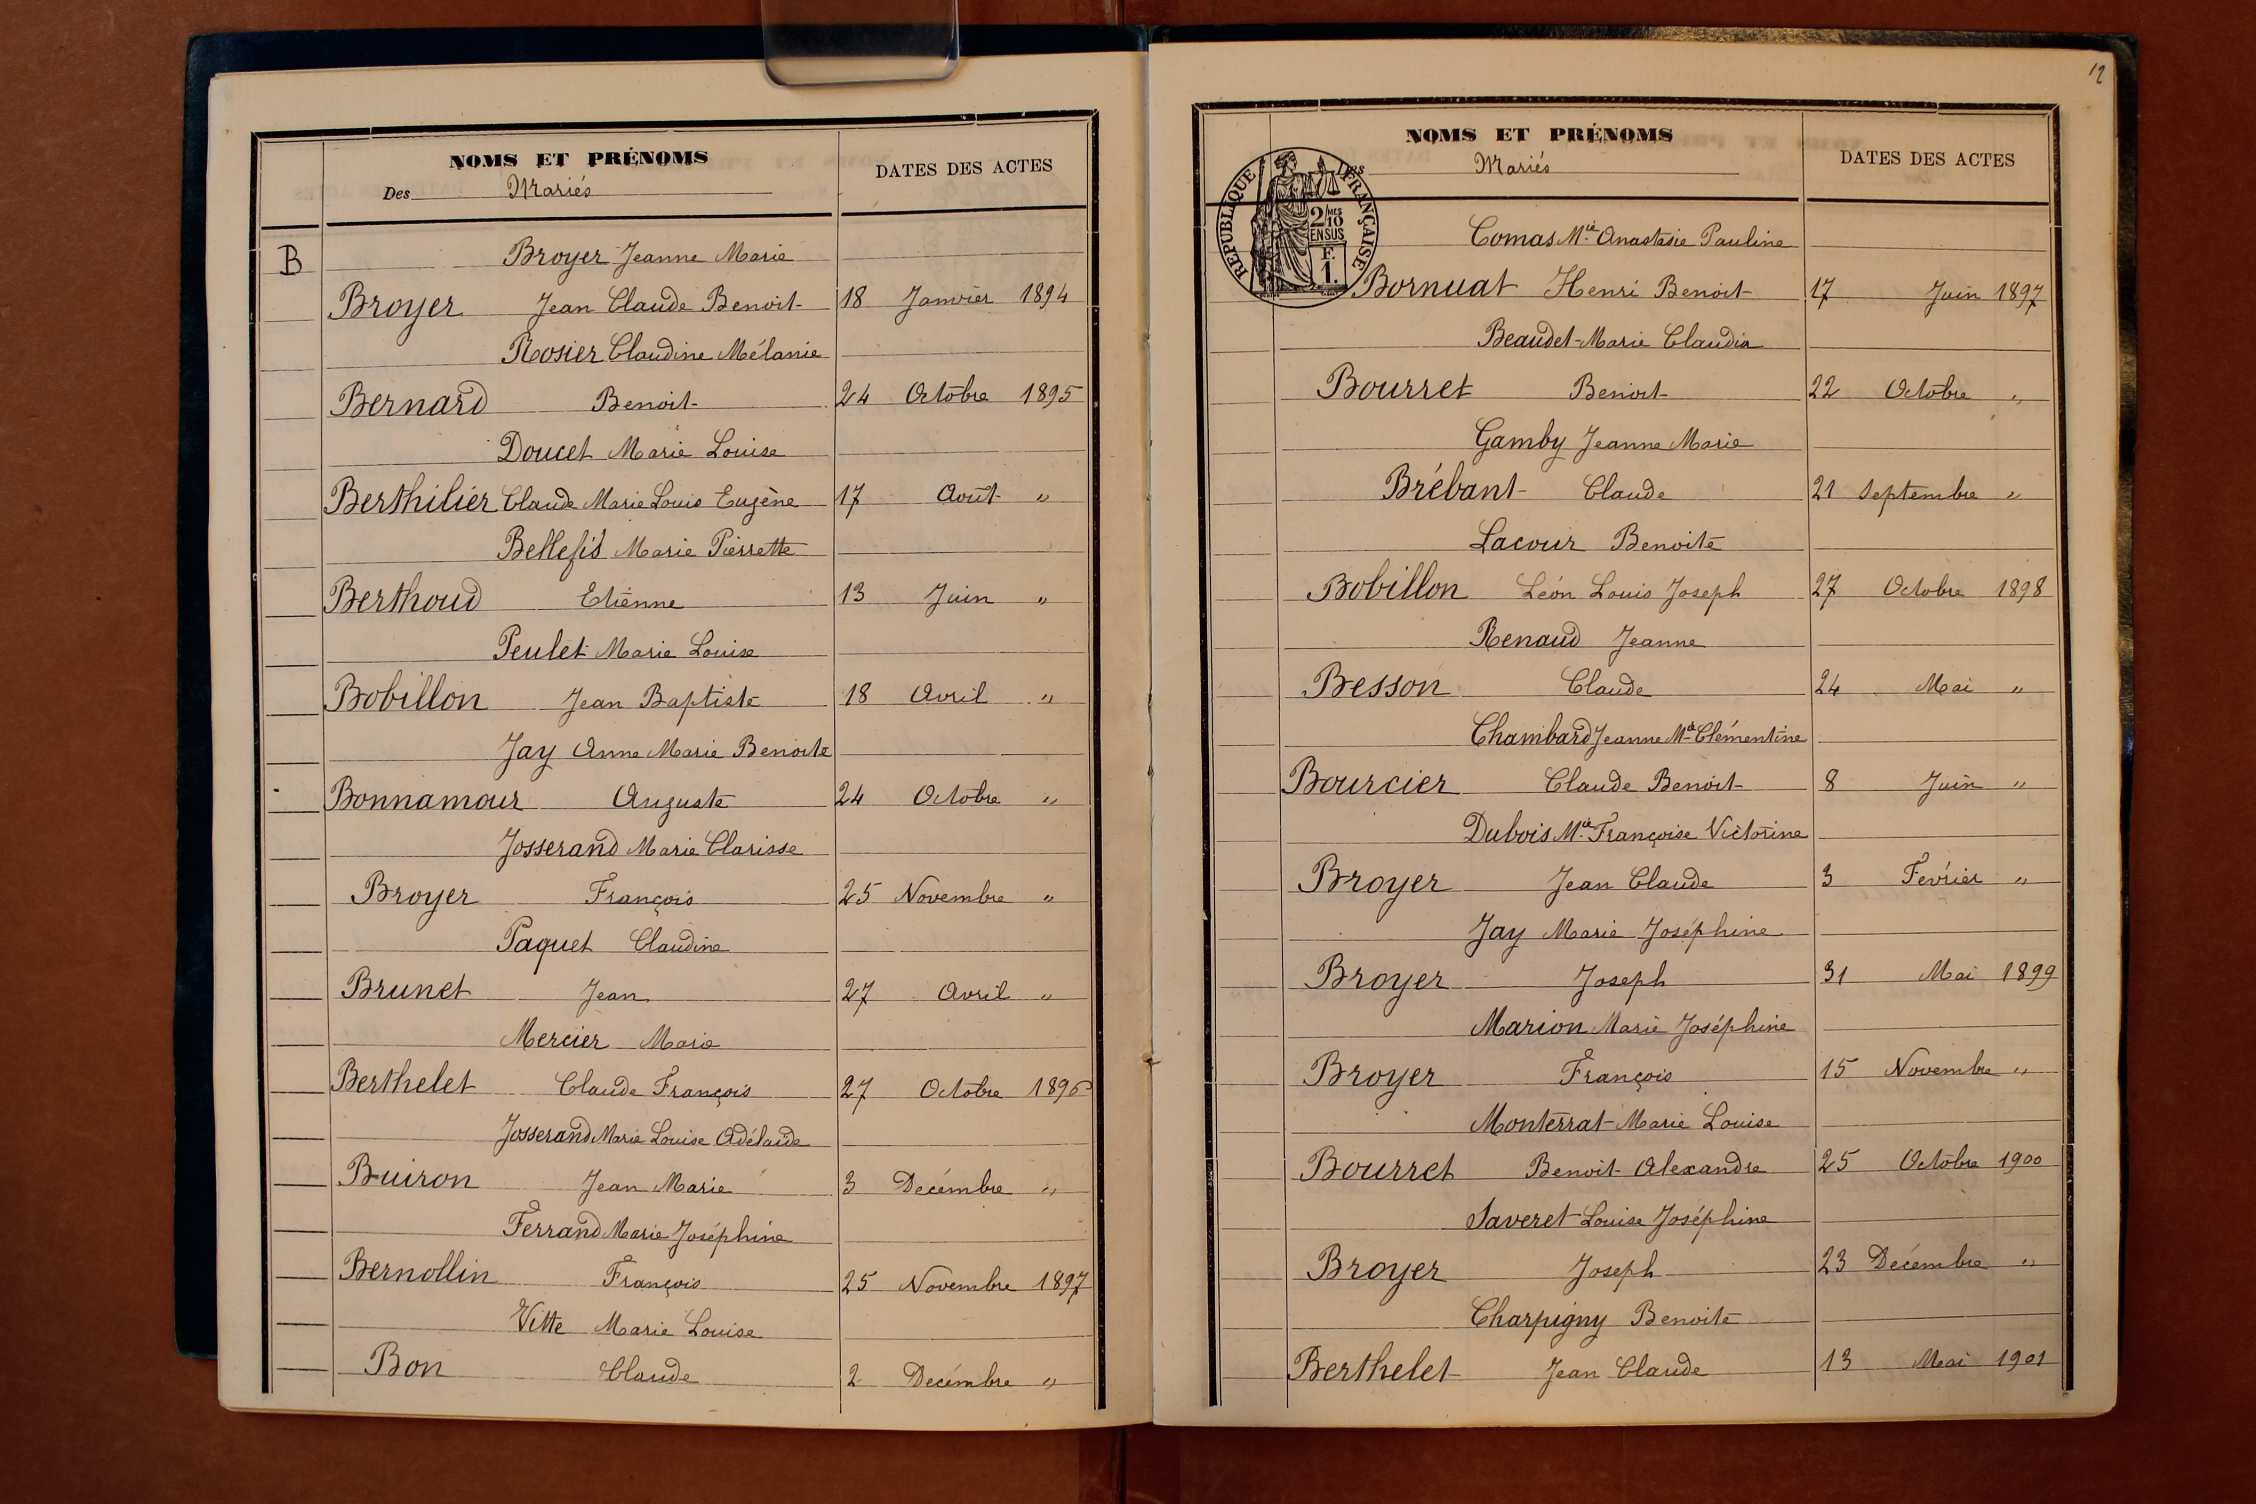 NOMS ET PRÉNOMS
Des Mariés
DATES DES ACTES
B
Broyer Jeanne Marie
Broyer Jean Claude Benoit 18 Janvier 1894
Rosier Claudine Mélanie
Bernard Benoit 24 Octobre 1895
Doucet Marie Louise
Berthilier Claude Marie Louis Eugène 17 Août "
Bellefis Marie Pierrette
Berthoud Etienne 13 Juin "
Peulet Marie Louise
Bobillon Jean Baptiste 18 Avril "
Jay Anne Marie Benoite
Bonnamour Auguste 24 Octobre "
Josserand Marie Clarisse
Broyer François 25 Novembre "
Paquet Claudine
Brunet Jean 27 Avril "
Mercier Marie
Berthelet Claude François 27 Octobre 1896
Josserand Marie Louise Adélaïde
Buiron Jean Marie 3 Décembre "
Ferrand Marie Joséphine
Bernollin François 25 Novembre 1897
Vitte Marie Louise
Bon Claude 2 Décembre "
12
NOMS ET PRÉNOMS
Des Mariés
DATES DES ACTES
RÉPUBLIQUE FRANÇAISE
2/10 MES
EN SUS
F.
1.
Comas Mie Anastasie Pauline
Bornuat Henri Benoit 17 Juin 1897
Beaudet Marie Claudia
Bourret Benoit 22 Octobre "
Gamby Jeanne Marie
Brébant Claude 21 Septembre "
Lacour Benoite
Bobillon Léon Louis Joseph 27 Octobre 1898
Renaud Jeanne
Besson Claude 24 Mai "
Chambard Jeanne Mie Clémentine
Bourcier Claude Benoit 8 Juin "
Dubois Mie Françoise Victorine
Broyer Jean Claude 3 Février "
Jay Marie Joséphine
Broyer Joseph 31 Mai 1899
Marion Marie Joséphine
Broyer François 15 Novembre "
Monterrat Marie Louise
Bourret Benoit Alexandre 25 Octobre 1900
Saveret Louise Joséphine
Broyer Joseph 23 Décembre "
Charpigny Benoite
Berthelet Jean Claude 13 Mai 1901